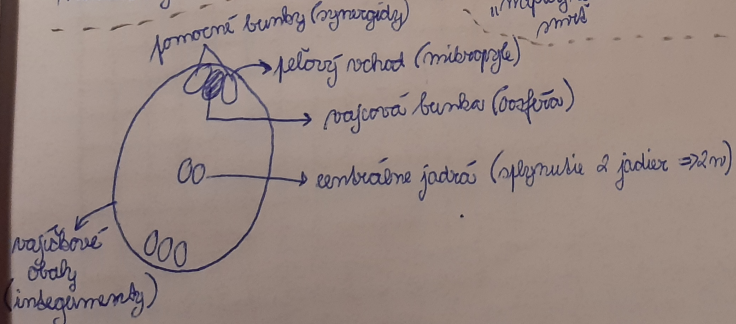 smrť
pomocné bunky (synergidy)
peľový vchod (mikropyle)
vajcová bunka (oosféra)
centrálne jadrá (splynutie 2 jadier => 2n)
vajíčkové
obaly
(integumenty)